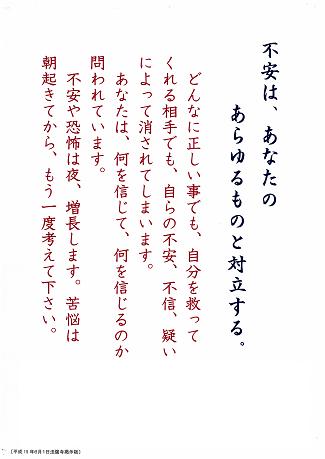 不安は、あなたの
あらゆるものと対立する。
どんなに正しい事でも、自分を救って
くれる相手でも、自らの不安、不信、疑い
によって消されてしまいます。
あなたは、何を信じて、何を信じるのか
問われています。
不安や恐怖は夜、増長します。苦悩は
朝起きてから、もう一度考えて下さい。